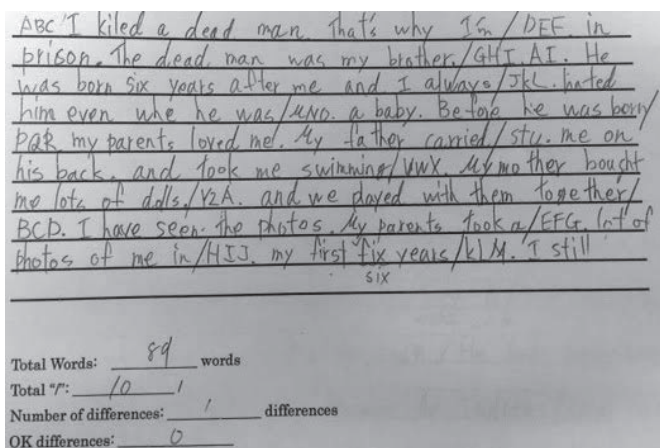 ABC I kiled a dead man. That's why I'm / DEF. in
prison. The dead man was my brother. / GHI. AI. He
was born six years after me and I always / JKL. hated
him even whe he was / MNO. a baby. Before he was born /
PQR my parents loved me. My father carried / STU. me on
his back. and took me swimming / VWX. My mother bought
me lots of dolls. / YZA. and we played with them together /
BCD. I have seen the photos. My parents took a / EFG. lot of
photos of me in / HIJ. my first fix years / KLM. I still
six
Total Words: 89 words
Total "/": 10 1
Number of differences: 1 differences
OK differences: 0